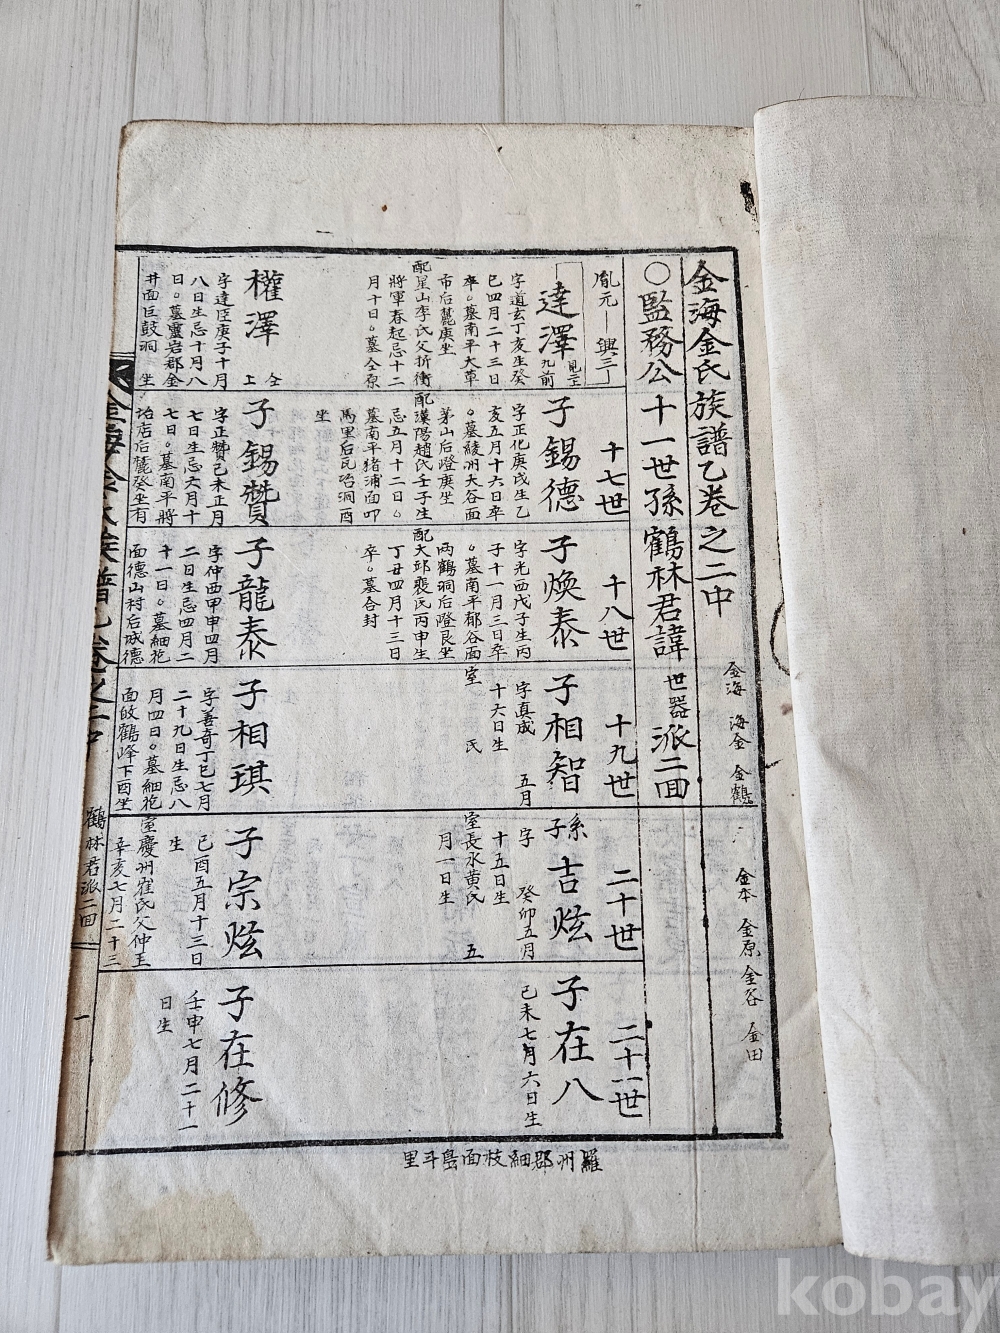 金海金氏族譜乙卷之二中
金海 海金 金鶴
金本 金原 金谷 金田
○監務公十一世孫鶴林君諱世器派二回
胤元—興三丁
達澤
九前
字道玄丁亥生癸
巳四月二十三日
卒。墓南平大草
市后麓庚坐
配星山李氏父折衝
將軍春起忌十二
月十日。墓仝原
權澤
仝上
字達臣庚子十月
八日生忌十月八
日。墓靈岩郡金
井面巨鼓洞 坐
十七世
子錫德
字正化庚戌生乙
亥五月十六日卒
。墓綾州大谷面
茅山后嶝庚坐
配漢陽趙氏壬子生
忌五月十二日。
墓南平猪浦面叩
馬里后瓦冶洞酉
坐
子錫贊
字正贊己未正月
七日生忌六月十
七日。墓南平將
冶店后麓癸坐有
十八世
子煥泰
字光西戊子生丙
子十一月三日卒
。墓南平郁谷面
兩鶴洞后嶝艮坐
配大邱裵氏丙申生
丁丑四月十三日
卒。墓合封
子龍泰
字仲西甲申四月
二日生忌四月二
十一日。墓細花
面德山村后城德
十九世
子相智
字真成 五月
十六日生
室 氏
子相琪
字善奇丁巳七月
二十九日生忌八
月四日。墓細花
面皎鶴峰下酉坐
二十世
孫子吉炫
字 癸卯五月
十五日生
室長水黃氏 五
月一日生
子宗炫
己酉五月十三日
生
室慶州崔氏父仲玉
辛亥七月二十三
二十一世
子在八
己未七月六日生
子在修
壬申七月二十一
日生
金海金氏族譜乙卷之二中
鶴林君派二回
一
羅州郡細枝面島斗里
kobay